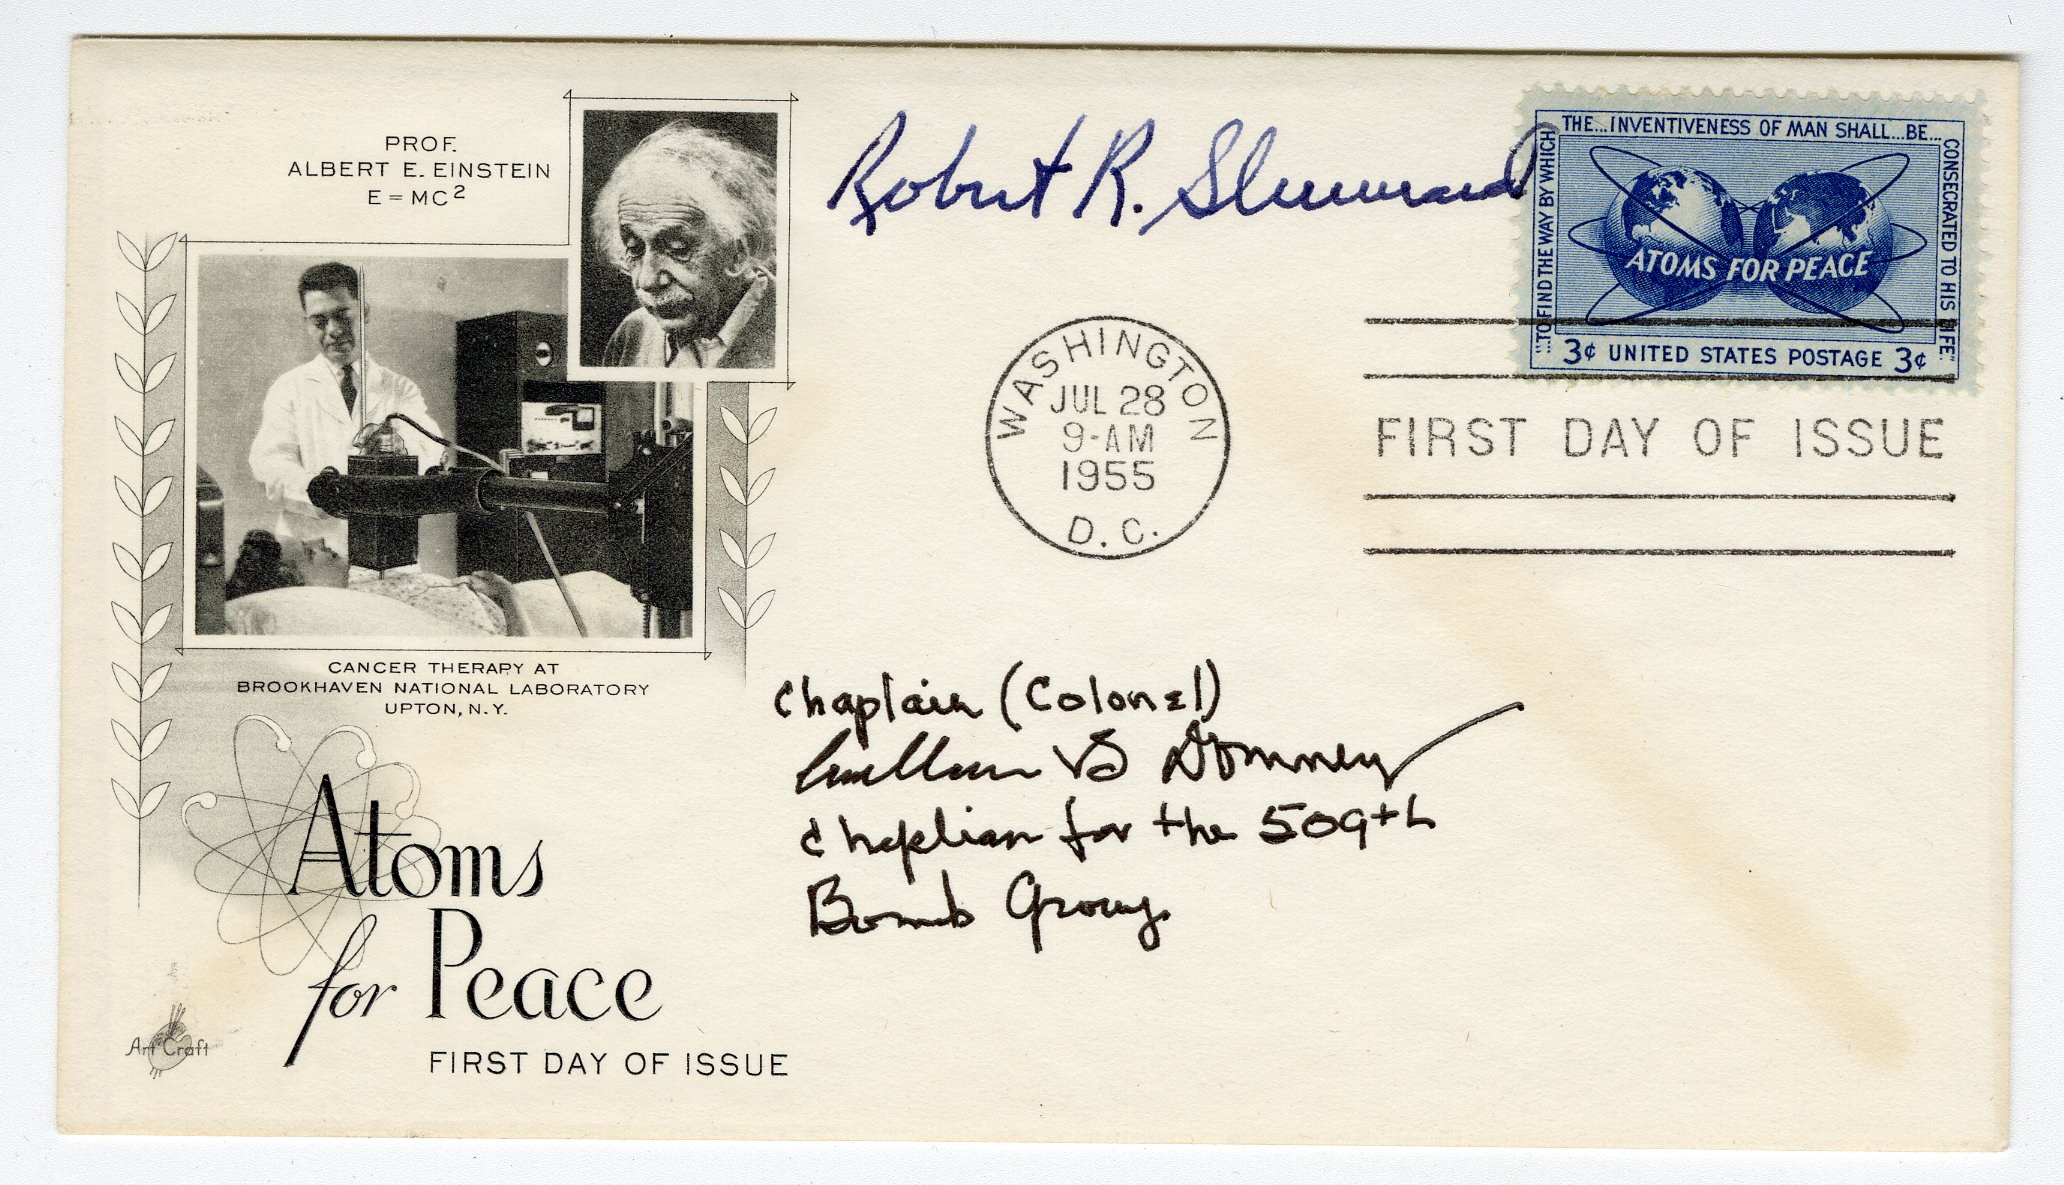 PROF.
ALBERT E. EINSTEIN
E=MC²
Robert R. Shumard
"...TO FIND THE WAY BY WHICH
THE...INVENTIVENESS OF MAN SHALL...BE...
CONSECRATED TO HIS LIFE."
ATOMS FOR PEACE
3¢ UNITED STATES POSTAGE 3¢
WASHINGTON
JUL 28
9-AM
1955
D.C.
FIRST DAY OF ISSUE
CANCER THERAPY AT
BROOKHAVEN NATIONAL LABORATORY
UPTON, N.Y.
Chaplain (Colonel)
William B Downey
Chaplian for the 509th
Bomb Group
Atoms
for Peace
Art Craft
FIRST DAY OF ISSUE